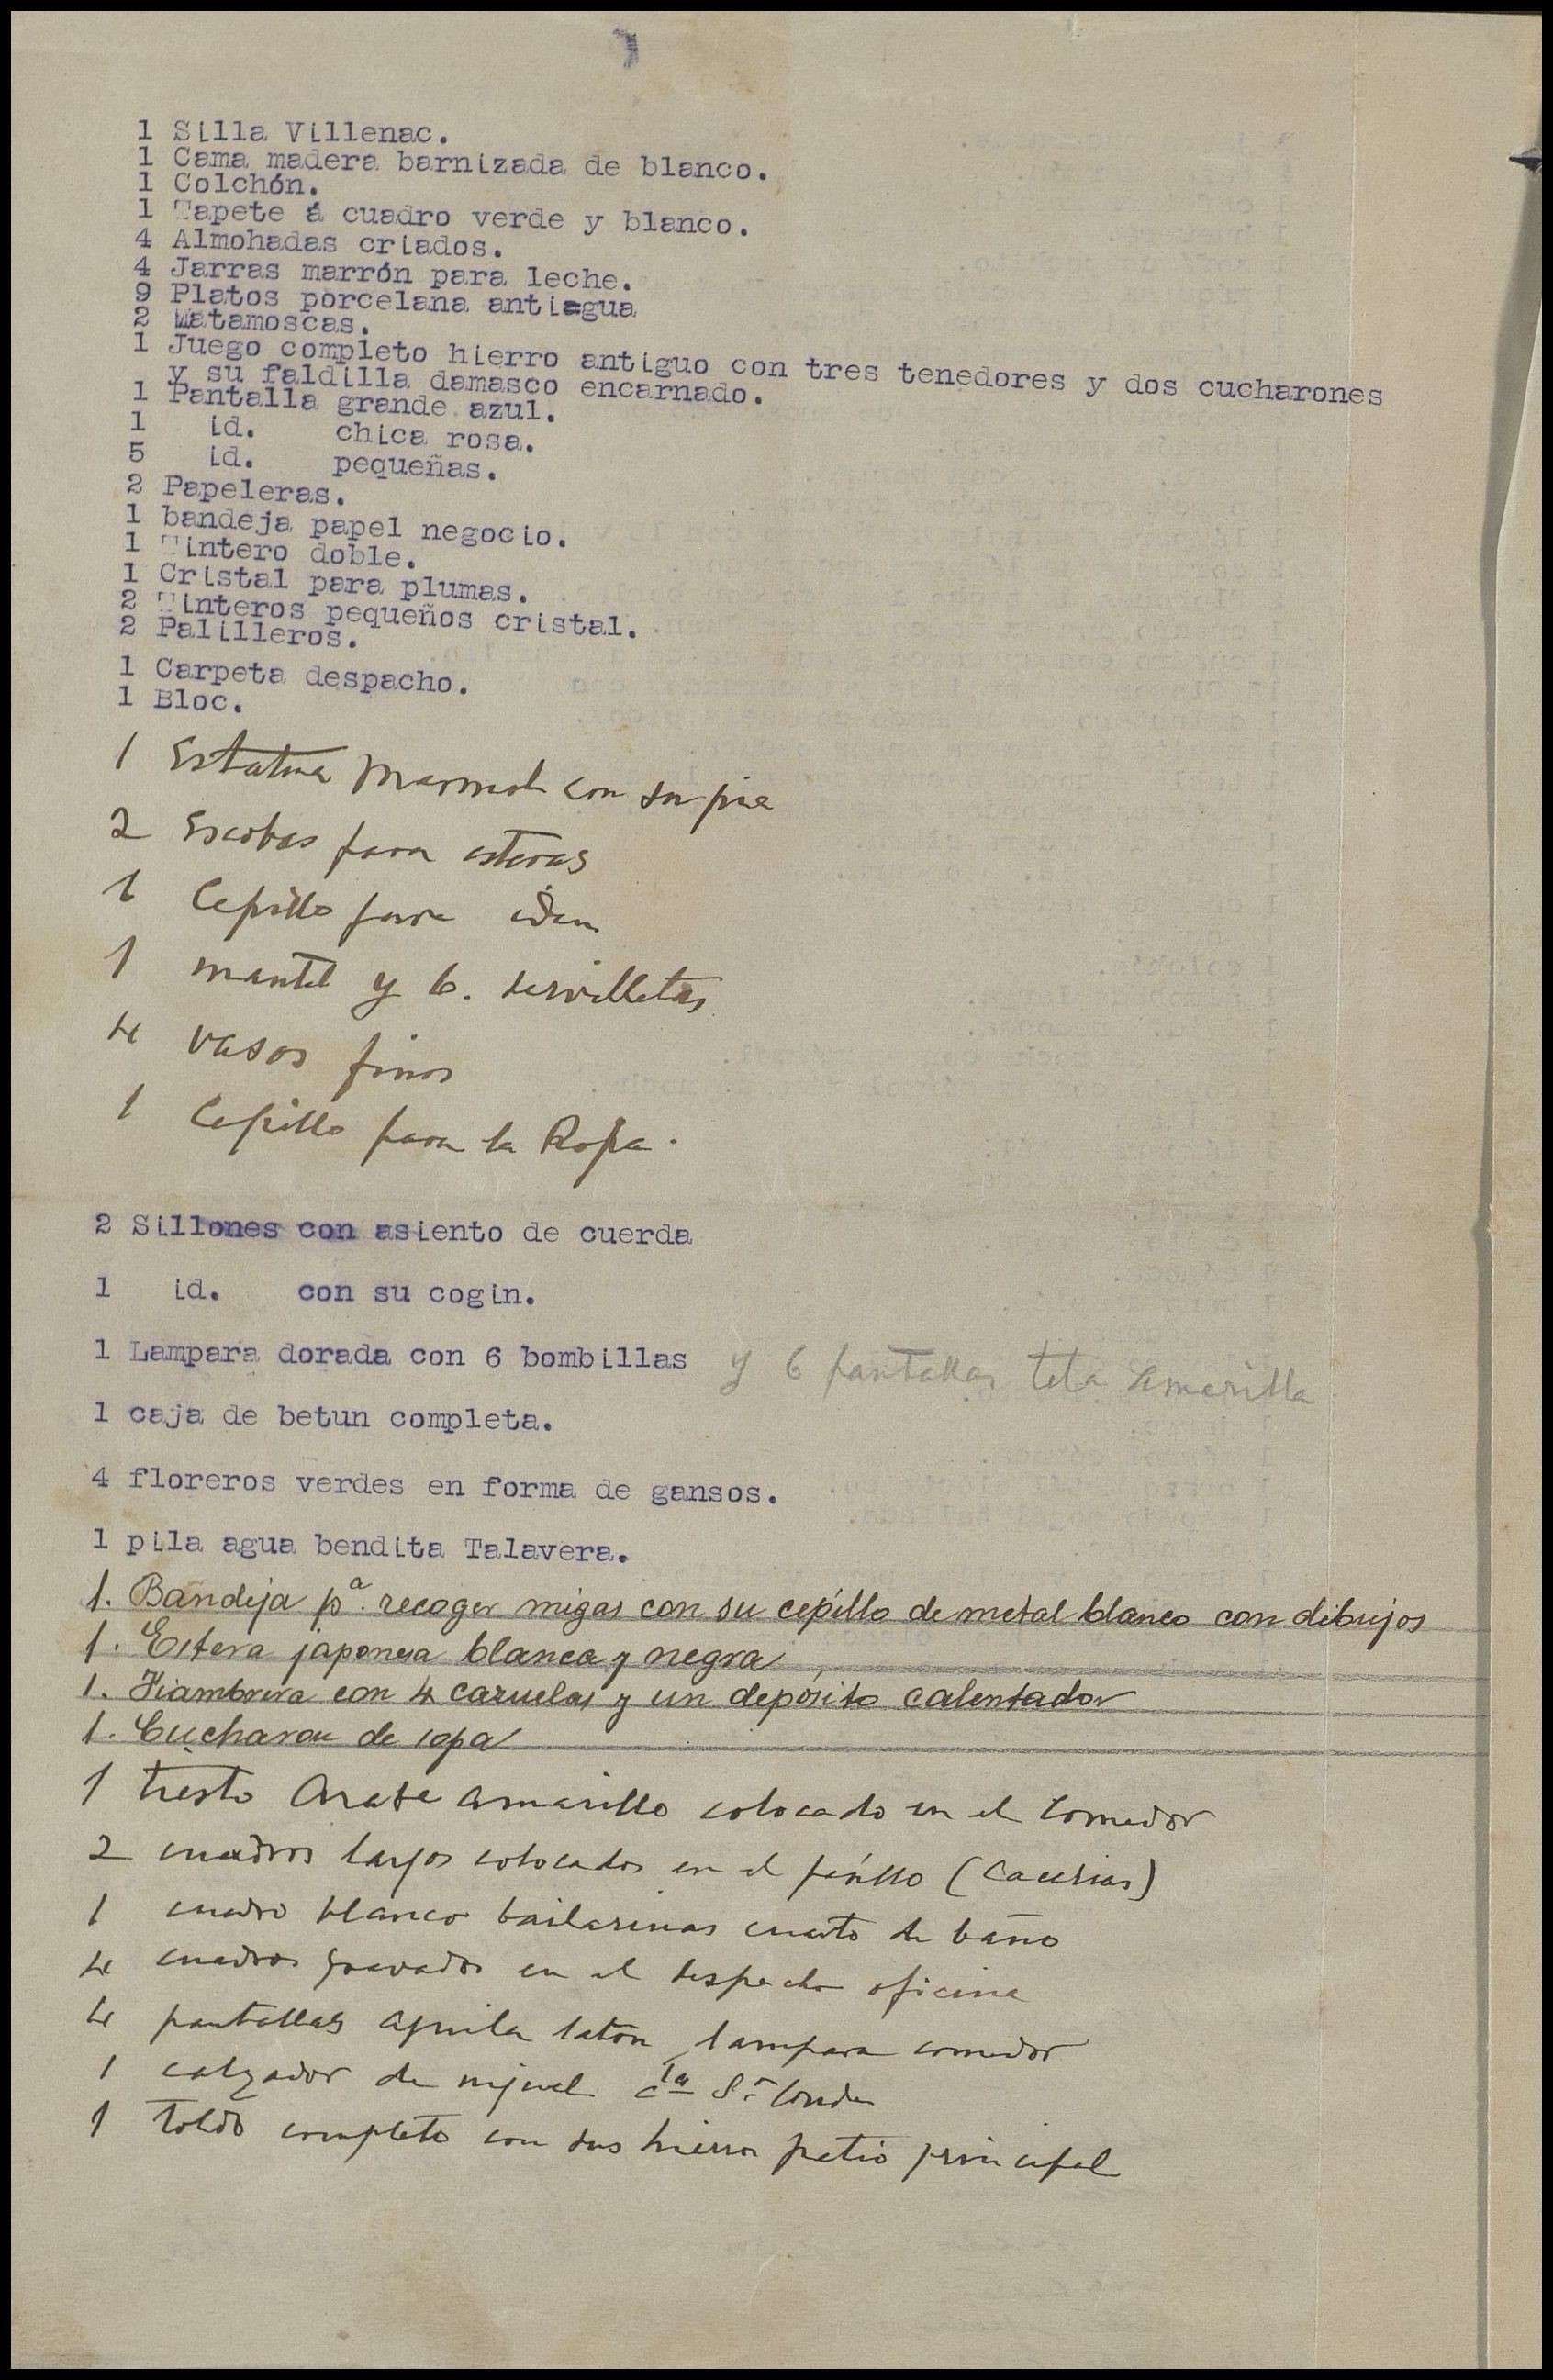 1 Silla Villenac.
1 Cama madera barnizada de blanco.
1 Colchón.
1 Tapete á cuadro verde y blanco.
4 Almohadas criados.
4 Jarras marrón para leche.
9 Platos porcelana antiagua
2 Matamoscas.
1 Juego completo hierro antiguo con tres tenedores y dos cucharones
y su faldilla damasco encarnado.
1 Pantalla grande azul.
1 id. chica rosa.
5 id. pequeñas.
2 Papeleras.
1 bandeja papel negocio.
1 Tintero doble.
1 Cristal para plumas.
2 Tinteros pequeños cristal.
2 Palilleros.
1 Carpeta despacho.
1 Bloc.
1 Estatua Marmol con su pie
2 Escobas para esteras
1 Cepillo para idem
1 mantel y 6. servilletas
4 vasos finos
1 Cepillo para la Ropa.
2 Sillones con asiento de cuerda
1 id. con su cogin.
1 Lampara dorada con 6 bombillas y 6 pantallas tela amarilla
1 caja de betun completa.
4 floreros verdes en forma de gansos.
1 pila agua bendita Talavera.
1. Bandeja pª. recoger migas con su cepillo de metal blanco con dibujos
1. Estera japonesa blanca y negra
1. Fiambrera con 4 cazuelas y un deposito calentador
1. Cucharon de sopa
1 tiesto Arabe amarillo colocado en el Comedor
2 cuadros largos colocados en el pasillo (Cacerias)
1 cuadro blanco bailarinas cuarto de baño
4 cuadros gravados en el despacho oficina
4 pantallas aguila laton lampara comedor
1 calzador de niquel Sr Conde
1 Toldo completo con sus hierros patio principal